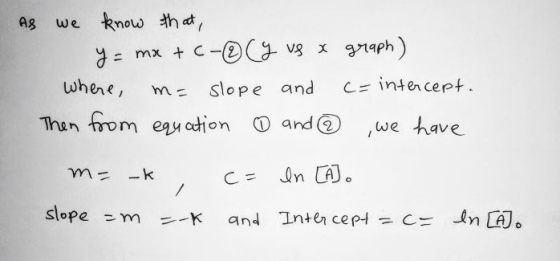 As we know that,
y = mx + c - ② (y vs x graph)
where, m = slope and c = intercept.
Then from equation ① and ② , we have
m = -k , c = ln [A]₀
slope = m = -k and Intercept = c = ln [A]₀